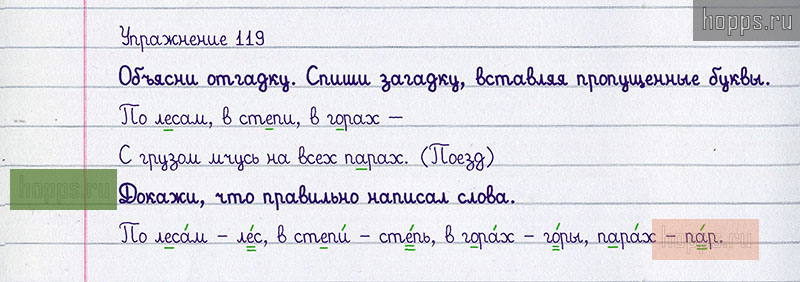 hopps.ru
Упражнение 119
Объясни отгадку. Спиши загадку, вставляя пропущенные буквы.
По лесам, в степи, в горах –
С грузом мчусь на всех парах. (Поезд)
hopps.ru
Докажи, что правильно написал слова.
По леса́м – ле́с, в степи́ – сте́пь, в гора́х – го́ры, пара́х – па́р.
hopps.ru